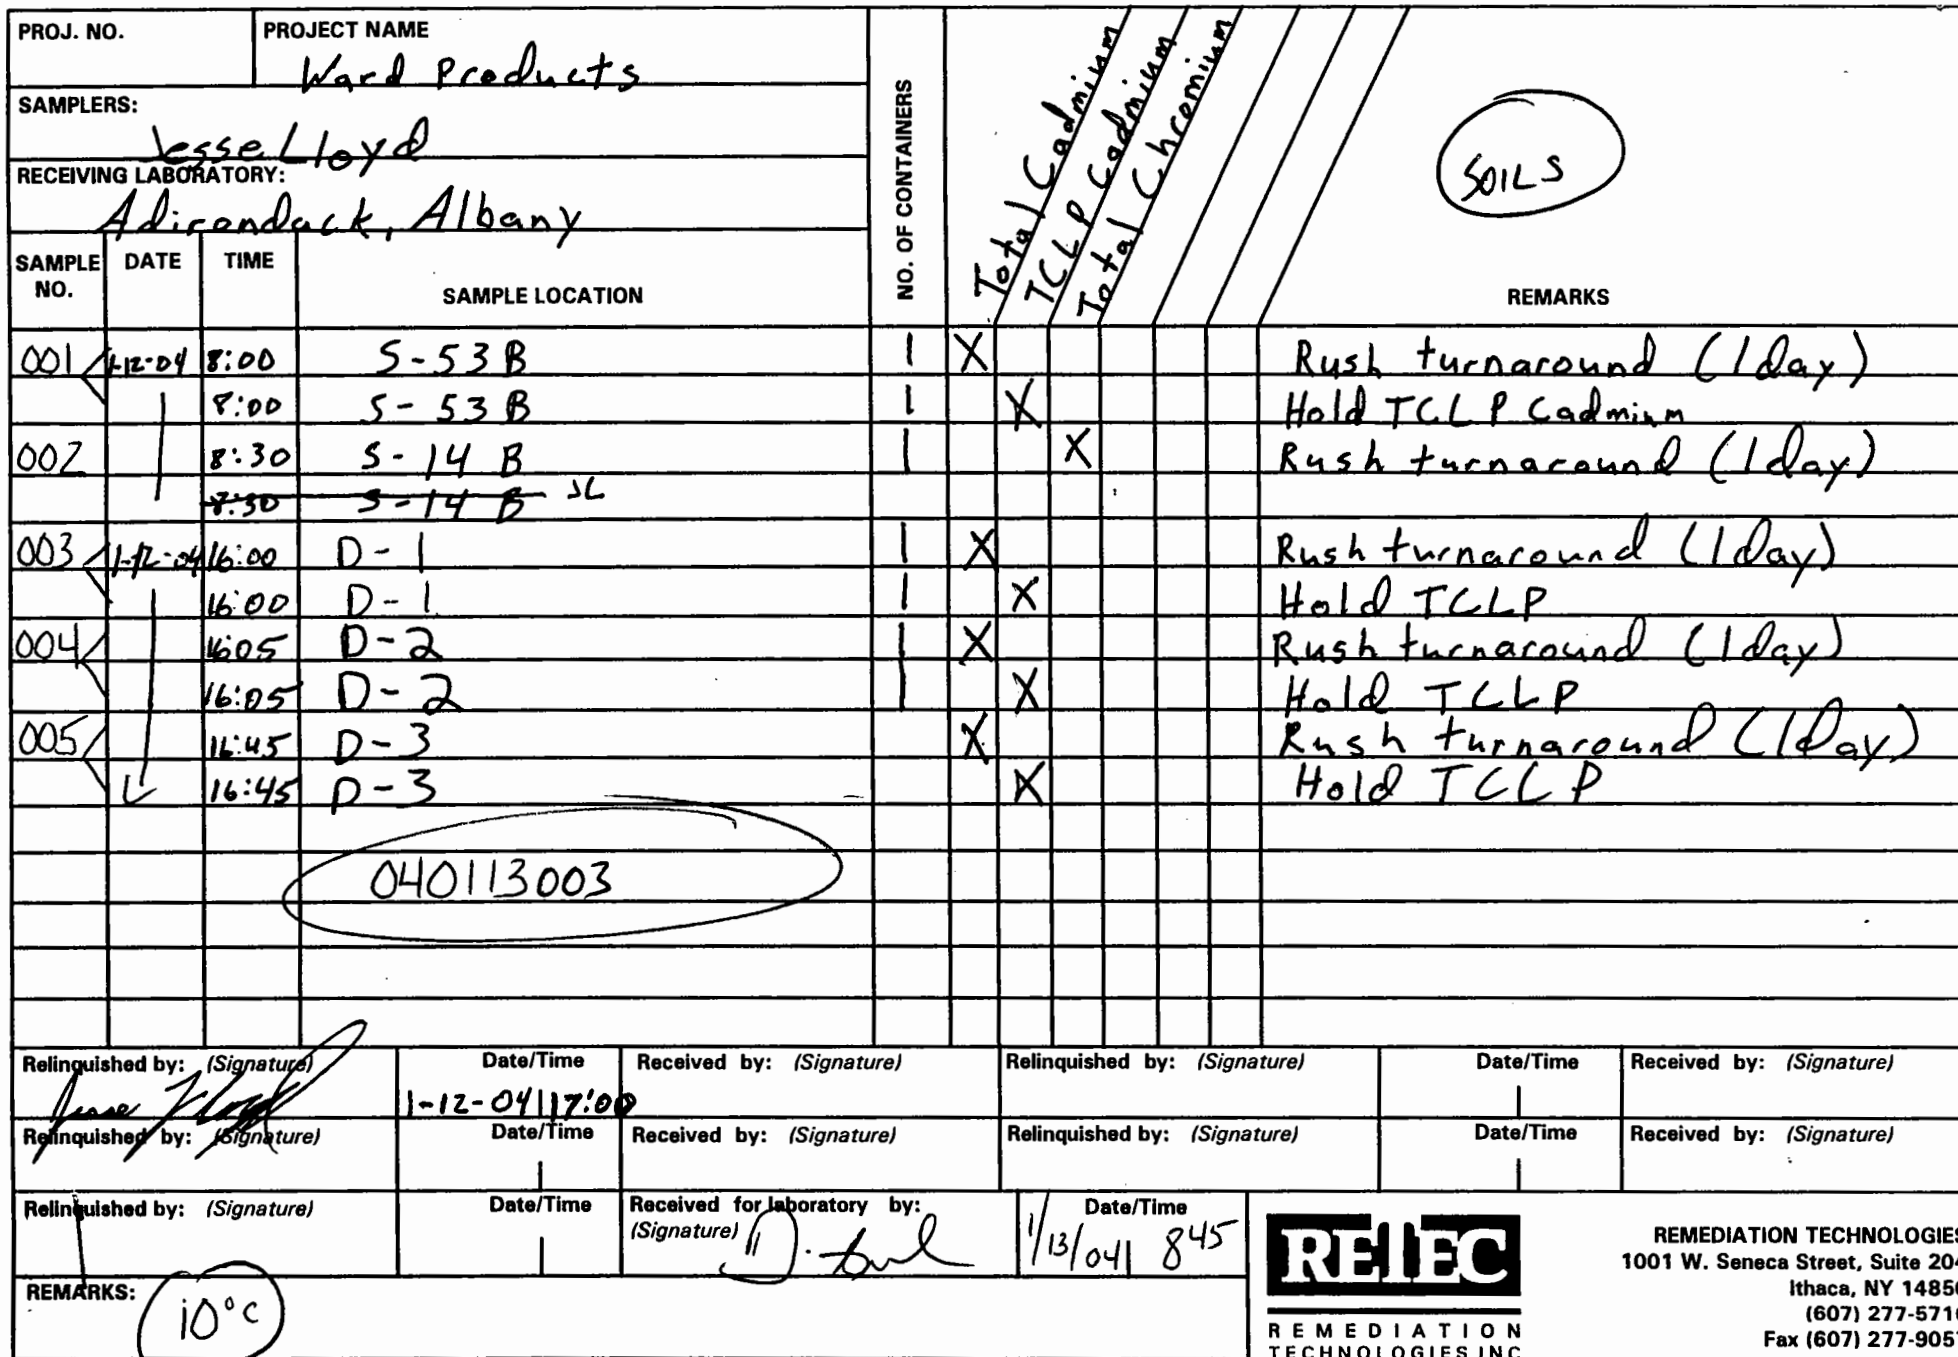 PROJ. NO. PROJECT NAME
Ward Products
SAMPLERS:
Jesse Lloyd
RECEIVING LABORATORY:
Adirondack, Albany
NO. OF CONTAINERS
Total Cadmium
TCLP Cadmium
Total Chromium
SOILS
SAMPLE NO. DATE TIME SAMPLE LOCATION REMARKS
001 1-12-04 8:00 S-53B 1 X Rush turnaround (1 day)
8:00 S-53B 1 X Hold TCLP Cadmium
002 8:30 S-14 B 1 X Rush turnaround (1 day)
8:30 S-14 B JL
003 1-12-04 16:00 D-1 1 X Rush turnaround (1 day)
16:00 D-1 1 X Hold TCLP
004 16:05 D-2 1 X Rush turnaround (1 day)
16:05 D-2 1 X Hold TCLP
005 16:45 D-3 X Rush turnaround (1 day)
16:45 D-3 X Hold TCLP
040113003
Relinquished by: (Signature) Date/Time Received by: (Signature) Relinquished by: (Signature) Date/Time Received by: (Signature)
Jesse Lloyd 1-12-04 17:00
Relinquished by: (Signature) Date/Time Received by: (Signature) Relinquished by: (Signature) Date/Time Received by: (Signature)
Relinquished by: (Signature) Date/Time Received for laboratory by: (Signature) Date/Time
1/13/04 845
REMARKS:
10°C
RETEC
REMEDIATION
TECHNOLOGIES INC
REMEDIATION TECHNOLOGIES
1001 W. Seneca Street, Suite 204
Ithaca, NY 1485
(607) 277-571
Fax (607) 277-905